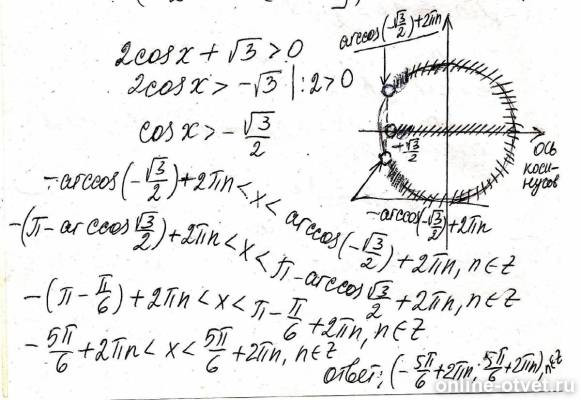 2cosx + √3 > 0
2cosx > -√3 | :2 > 0
cosx > -√3/2
-arccos(-√3/2) + 2πn < x < arccos(-√3/2) + 2πn, n∈Z
-(π - arccos √3/2) + 2πn < x < π - arccos √3/2 + 2πn, n∈Z
-(π - π/6) + 2πn < x < π - π/6 + 2πn, n∈Z
-5π/6 + 2πn < x < 5π/6 + 2πn, n∈Z
ответ: (-5π/6 + 2πn; 5π/6 + 2πn), n∈Z
arccos(-√3/2) + 2πn
-√3/2
ось
коси-
нусов
-arccos(-√3/2) + 2πn
online-otvet.ru